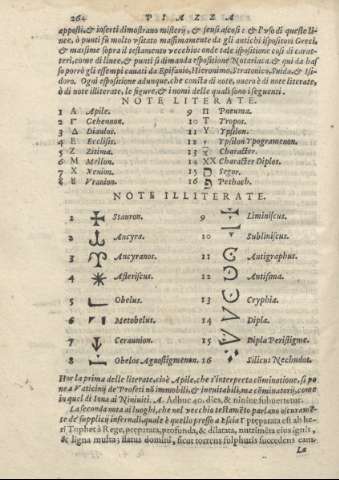 264 PIAZZA
apposti, & inserti dimostrano misterij, & sensi ascosi: & l'uso di queste li-
nee, ò punti fù molto vsitato massimamente da gli antichi ispositori Greci,
& massime sopra il testamento vecchio: onde tale ispositione così di carat-
teri, come di linee, & punti si dimanda ispositione Notariaca. & qui da bas
so porrò gli essempi cauati da Epifanio, Hieronimo, Stratonico, Suida, & Isi-
doro. Ogni ispositione adunque, che consta di note, ouero è di note literate,
ò di note illiterate, le figure, & i nomi delle quali sono i seguenti.
NOTE LITERATE.
1 A Apile. 9 Π Pneuma.
2 Γ Gehennon. 10 T Tropos.
3 Δ Diaulos. 11 Y Ypsilon.
4 E Ecclisis. 12 Ypsilon Ypogramenon.
5 Z Zitima. 13 Character.
6 M Mellon. 14 XX Character Diplos.
7 X Xenion. 15 Segor.
8 Vranion. 16 Pethach.
NOTE ILLITERATE.
1 Stauron. 9 Liminiscus.
2 Ancyra. 10 Subliniscus.
3 Ancyranos. 11 Antigraphus.
4 Asteriscus. 12 Antisima.
5 Obelus. 13 Cryphia.
6 Metobelus. 14 Diplæ.
7 Ceraunion. 15 Dipla Peristigmæ.
8 Obelos Agnostigmenon. 16 Silicus Nechudot.
Hor la prima delle literate, cioè Apile, che s'interpreta cõminatione, si po
ne a Vaticinij de' Profeti nõ immobili, & immutabili, ma cõminatorij, come
in quel di Iona di Niniuiti. A. Adhuc 40. dies, & niniue subuertetur.
La seconda nota a i luoghi, che nel vecchio testamẽto parlano oscuramẽ-
te de' supplicij infernali, quale è quello presso a Esaia Γ præparata est ab he-
ri Tophet à Rege, præparata, profunda, & dilatata, nutrimẽta eius ignis,
& ligna multa; flatus domini, sicut torrens sulphuris succedens eam.
La